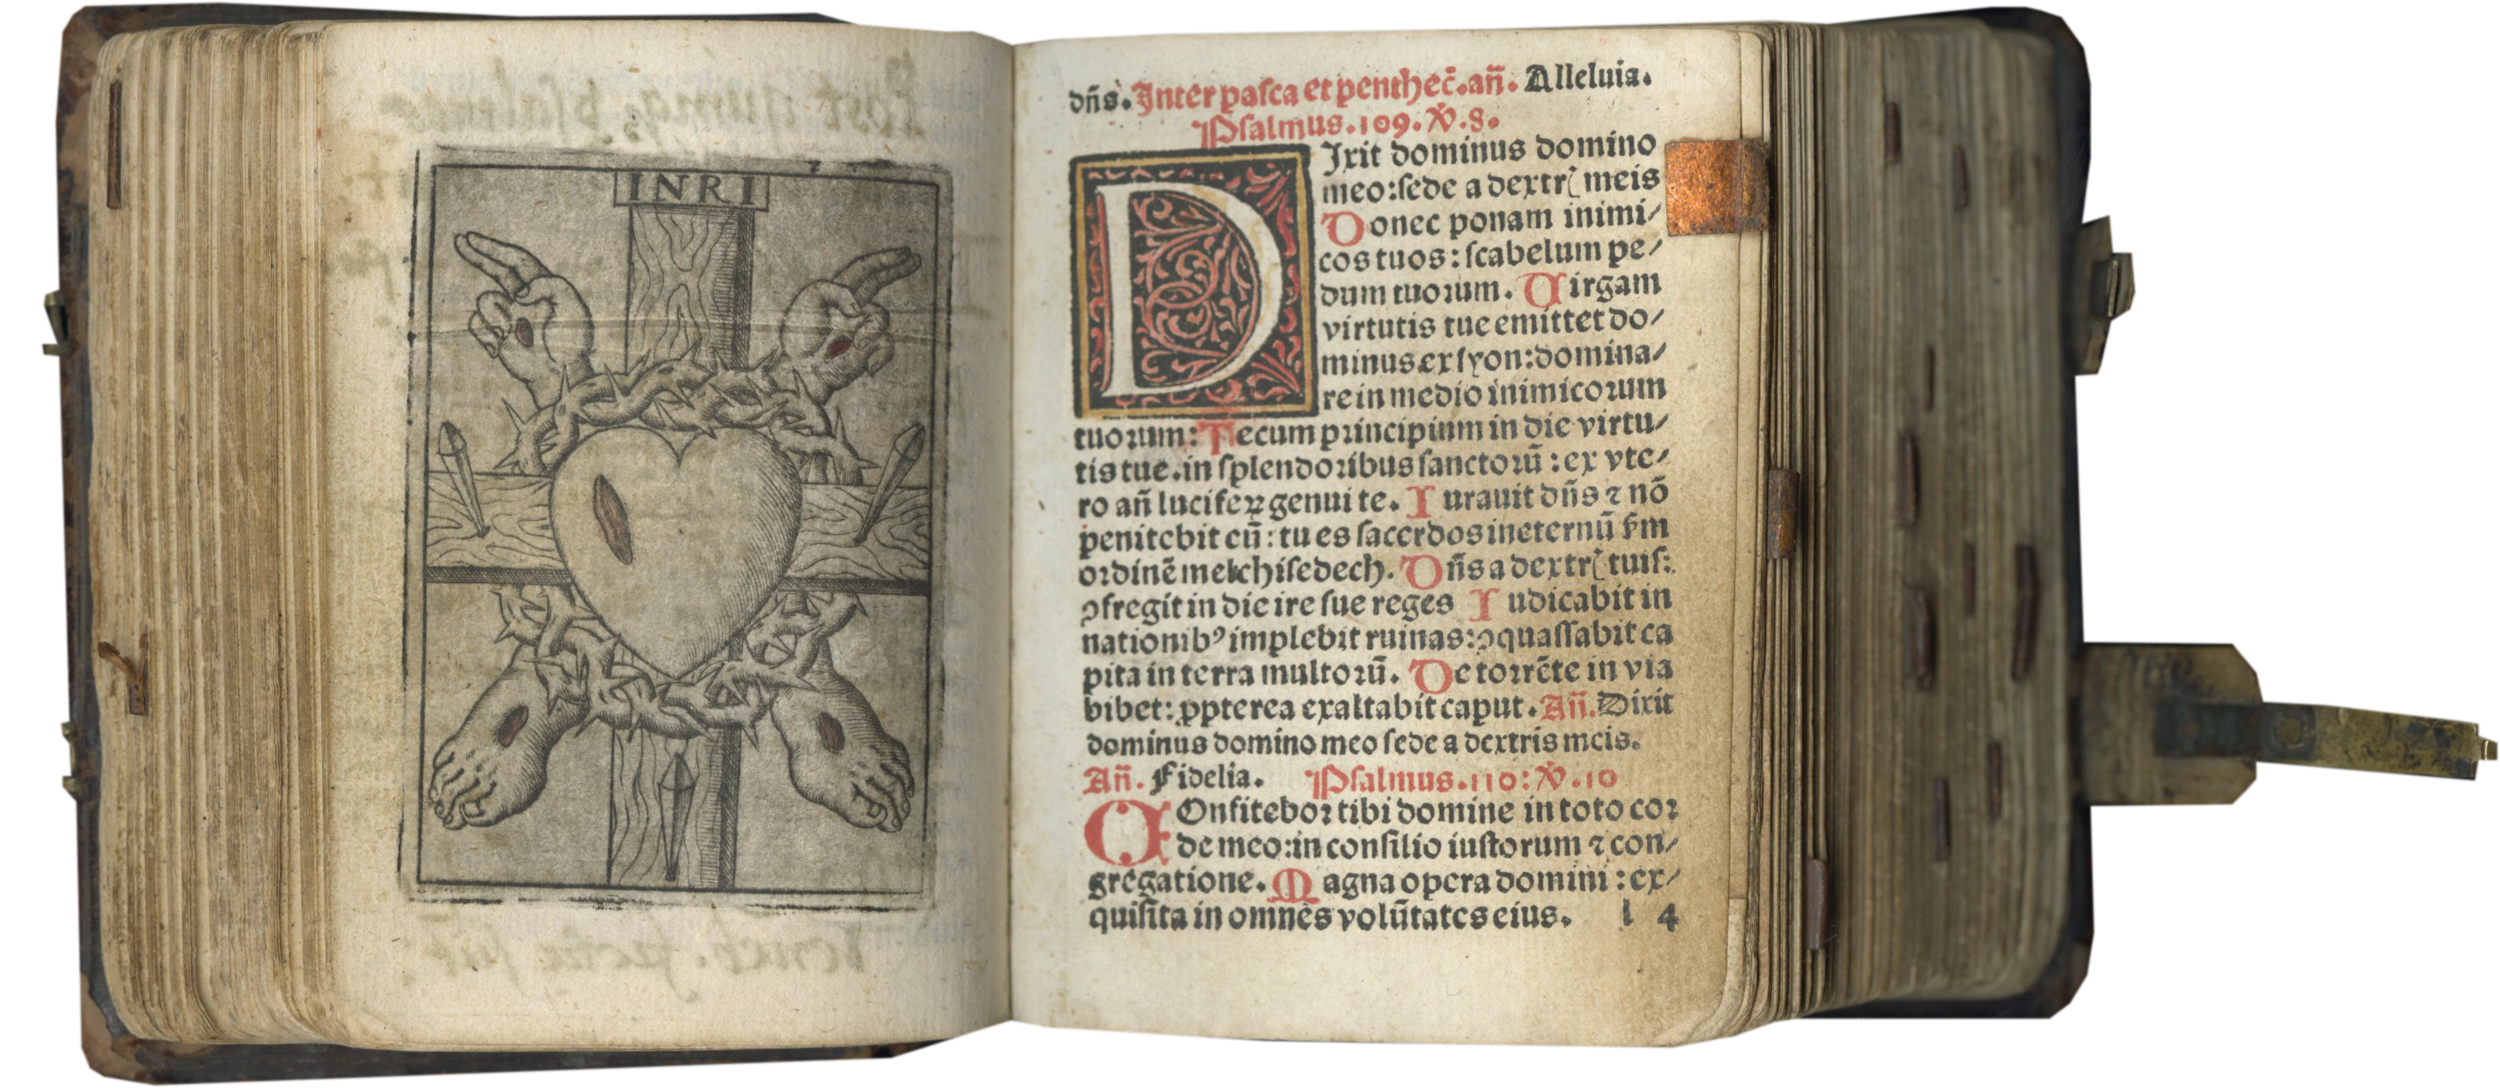 INRI
dn̄s. Inter paſca et penthec̄. an̄. Alleluia.
Pſalmus. 109. V̇. 8.
DIxit dominus domino
meo: ſede a dextrꝭ meis
Donec ponam inimi⸗
cos tuos: ſcabelum pe⸗
dum tuoꝛum. Uirgam
virtutis tue emittet do⸗
minus ex ſyon: domina⸗
re in medio inimicoꝛum
tuoꝛum: Tecum pꝛincipium in die virtu⸗
tis tue. in ſplendoꝛibus ſanctoꝛū: ex vte⸗
ro an̄ luciferꝝ genui te. Iurauit dn̄s ⁊ nō
penitebit eū: tu es ſacerdos in eternū ẜm
oꝛdinē melchiſedech. Dn̄s a dextrꝭ tuiſ:
ꝯfregit in die ire ſue reges Iudicabit in
nationibꝰ implebit ruinas: ꝯquaſſabit ca
pita in terra multoꝛū. De toꝛrēte in via
bibet: ꝓpterea exaltabit caput. An̄. Dixit
dominus domino meo ſede a dextris meis.
An̄. Fidelia. Pſalmus. 110: V̇. 10
COnfiteboꝛ tibi domine in toto coꝛ
de meo: in conſilio iuſtorum ⁊ con⸗
gregatione. Magna opera domini: ex⸗
quiſita in omnes volūtates eius. l 4